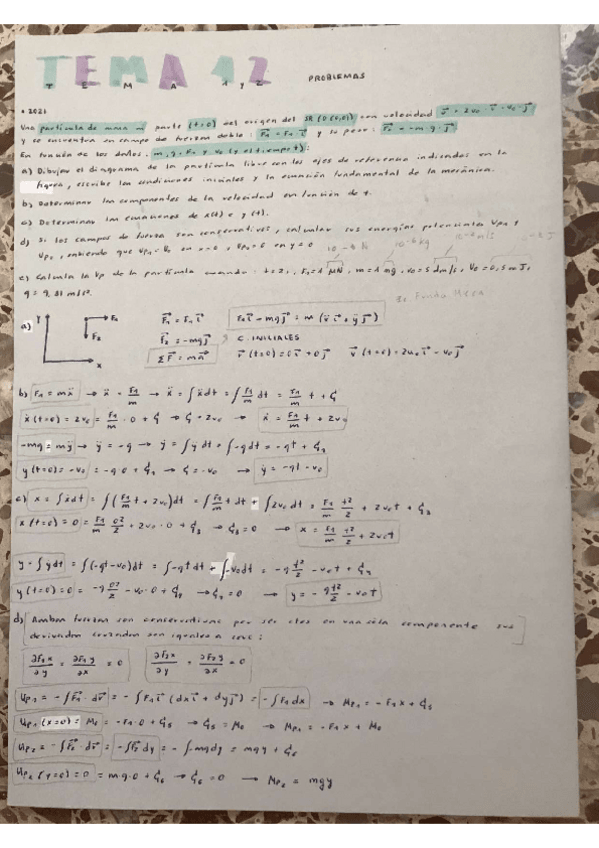 TEMA 1 y 2
PROBLEMAS
• 2021
Una partícula de masa m parte (t=0) del origen del SR (O(0,0)) con velocidad v⃗ = 2v₀·i⃗ - v₀·j⃗
y se encuentra en campo de fuerzas doble: F⃗₁ = F₁·i⃗ y su peso: F⃗₂ = -m·g·j⃗
En función de los datos, m, g, F₁ y v₀ (y el tiempo t):
a) Dibujar el diagrama de la partícula libre con los ejes de referencia indicados en la
figura, escribe las condiciones iniciales y la ecuación fundamental de la mecánica.
b) Determinar las componentes de la velocidad en función de t.
c) Determinar las ecuaciones de x(t) e y(t).
d) Si los campos de fuerza son conservativos, calcular sus energías potenciales Up₁ y
Up₂, sabiendo que Up₁=U₀ en x=0 y Up₂=0 en y=0
e) Calcula la Up de la partícula cuando: t=2s, F₁=1 μN, m=1 mg, v₀=5 dm/s, U₀=0,5 mJ,
g = 9,81 m/s².
a) Y X F₁ F₂
F⃗₁ = F₁ i⃗
F⃗₂ = -mg j⃗
ΣF⃗ = m a⃗
F₁ i⃗ - mg j⃗ = m (ẍ i⃗ + ÿ j⃗)
C. INICIALES
r⃗ (t=0) = 0 i⃗ + 0 j⃗ v⃗ (t=0) = 2v₀ i⃗ - v₀ j⃗
b) F₁ = mẍ → ẍ = F₁/m → ẋ = ∫ẍdt = ∫F₁/m dt = F₁/m t + C₁
ẋ(t=0) = 2v₀ = F₁/m · 0 + C₁ → C₁ = 2v₀ → ẋ = F₁/m t + 2v₀
-mg = mÿ → ÿ = -g → ẏ = ∫ÿdt = ∫-gdt = -gt + C₂
ẏ(t=0) = -v₀ = -g·0 + C₂ → C₂ = -v₀ → ẏ = -gt - v₀
c) x = ∫ẋdt = ∫(F₁/m t + 2v₀)dt = ∫F₁/m t dt + ∫2v₀dt = F₁/m t²/2 + 2v₀t + C₃
x(t=0) = 0 = F₁/m 0²/2 + 2v₀·0 + C₃ → C₃ = 0 → x = F₁/m t²/2 + 2v₀t
y = ∫ẏdt = ∫(-gt-v₀)dt = ∫-gt dt + ∫-v₀dt = -g t²/2 - v₀t + C₄
y(t=0) = 0 = -g 0²/2 - v₀·0 + C₄ → C₄ = 0 → y = -g t²/2 - v₀t
d) Ambas fuerzas son conservativas por ser ctes en una sola componente sus
derivadas cruzadas son iguales a cero:
∂F₁x/∂y = ∂F₁y/∂x = 0 ∂F₂x/∂y = ∂F₂y/∂x = 0
Up₁ = -∫F⃗₁·dr⃗ = -∫F₁ i⃗ (dx i⃗ + dy j⃗) = -∫F₁dx → Up₁ = -F₁x + C₅
Up₁(x=0) = U₀ = -F₁·0 + C₅ → C₅ = U₀ → Up₁ = -F₁x + U₀
Up₂ = -∫F⃗₂·dr⃗ = -∫F₂dy = -∫-mgdy = mgy + C₆
Up₂(y=0) = 0 = mg·0 + C₆ → C₆ = 0 → Up₂ = mgy